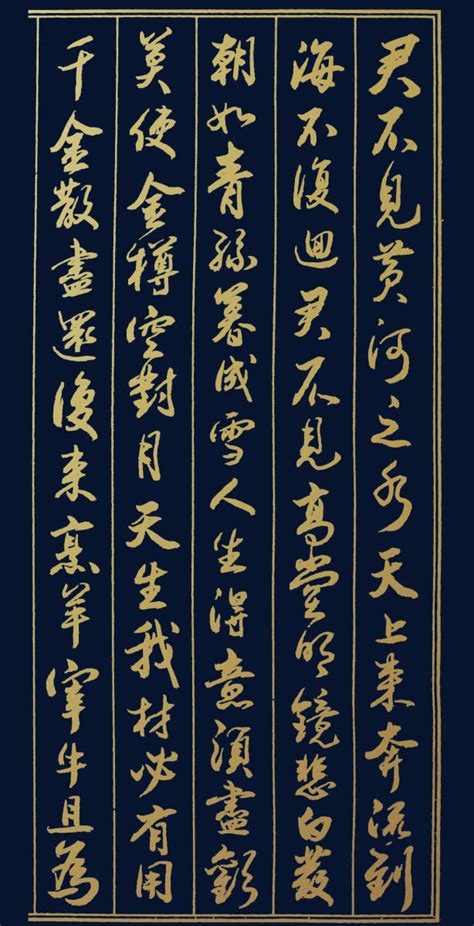 君不見黃河之水天上来奔流到
海不復迴君不見高堂明鏡悲白發
朝如青絲暮成雪人生得意須盡歡
莫使金樽空對月天生我材必有用
千金散盡還復来烹羊宰牛且為